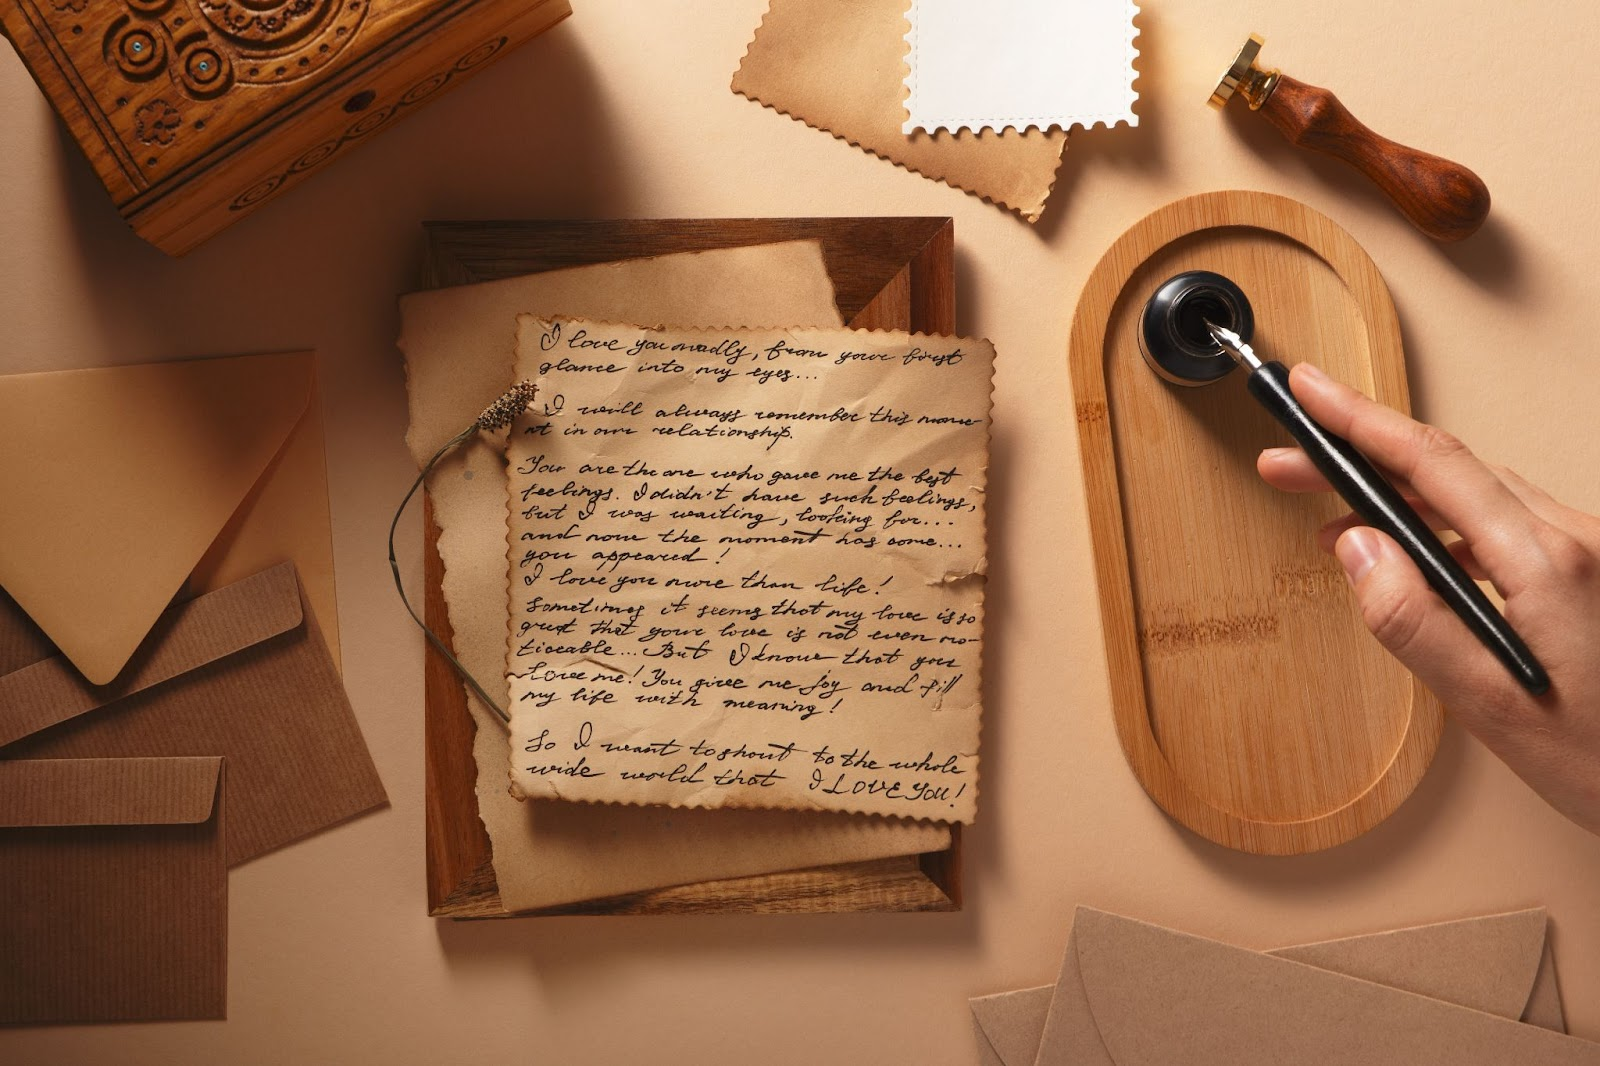 I love you madly, from your first
glance into my eyes...
I will always remember this mome-
nt in our relationship.
You are the one who gave me the best
feelings. I didn't have such feelings,
but I was waiting, looking for...
and now the moment has come...
you appeared!
I love you more than life!
Sometimes it seems that my love is so
great that your love is not even no-
ticeable... But I know that you
love me! You give me joy and fill
my life with meaning!
So I want to shout to the whole
wide world that I LOVE YOU!